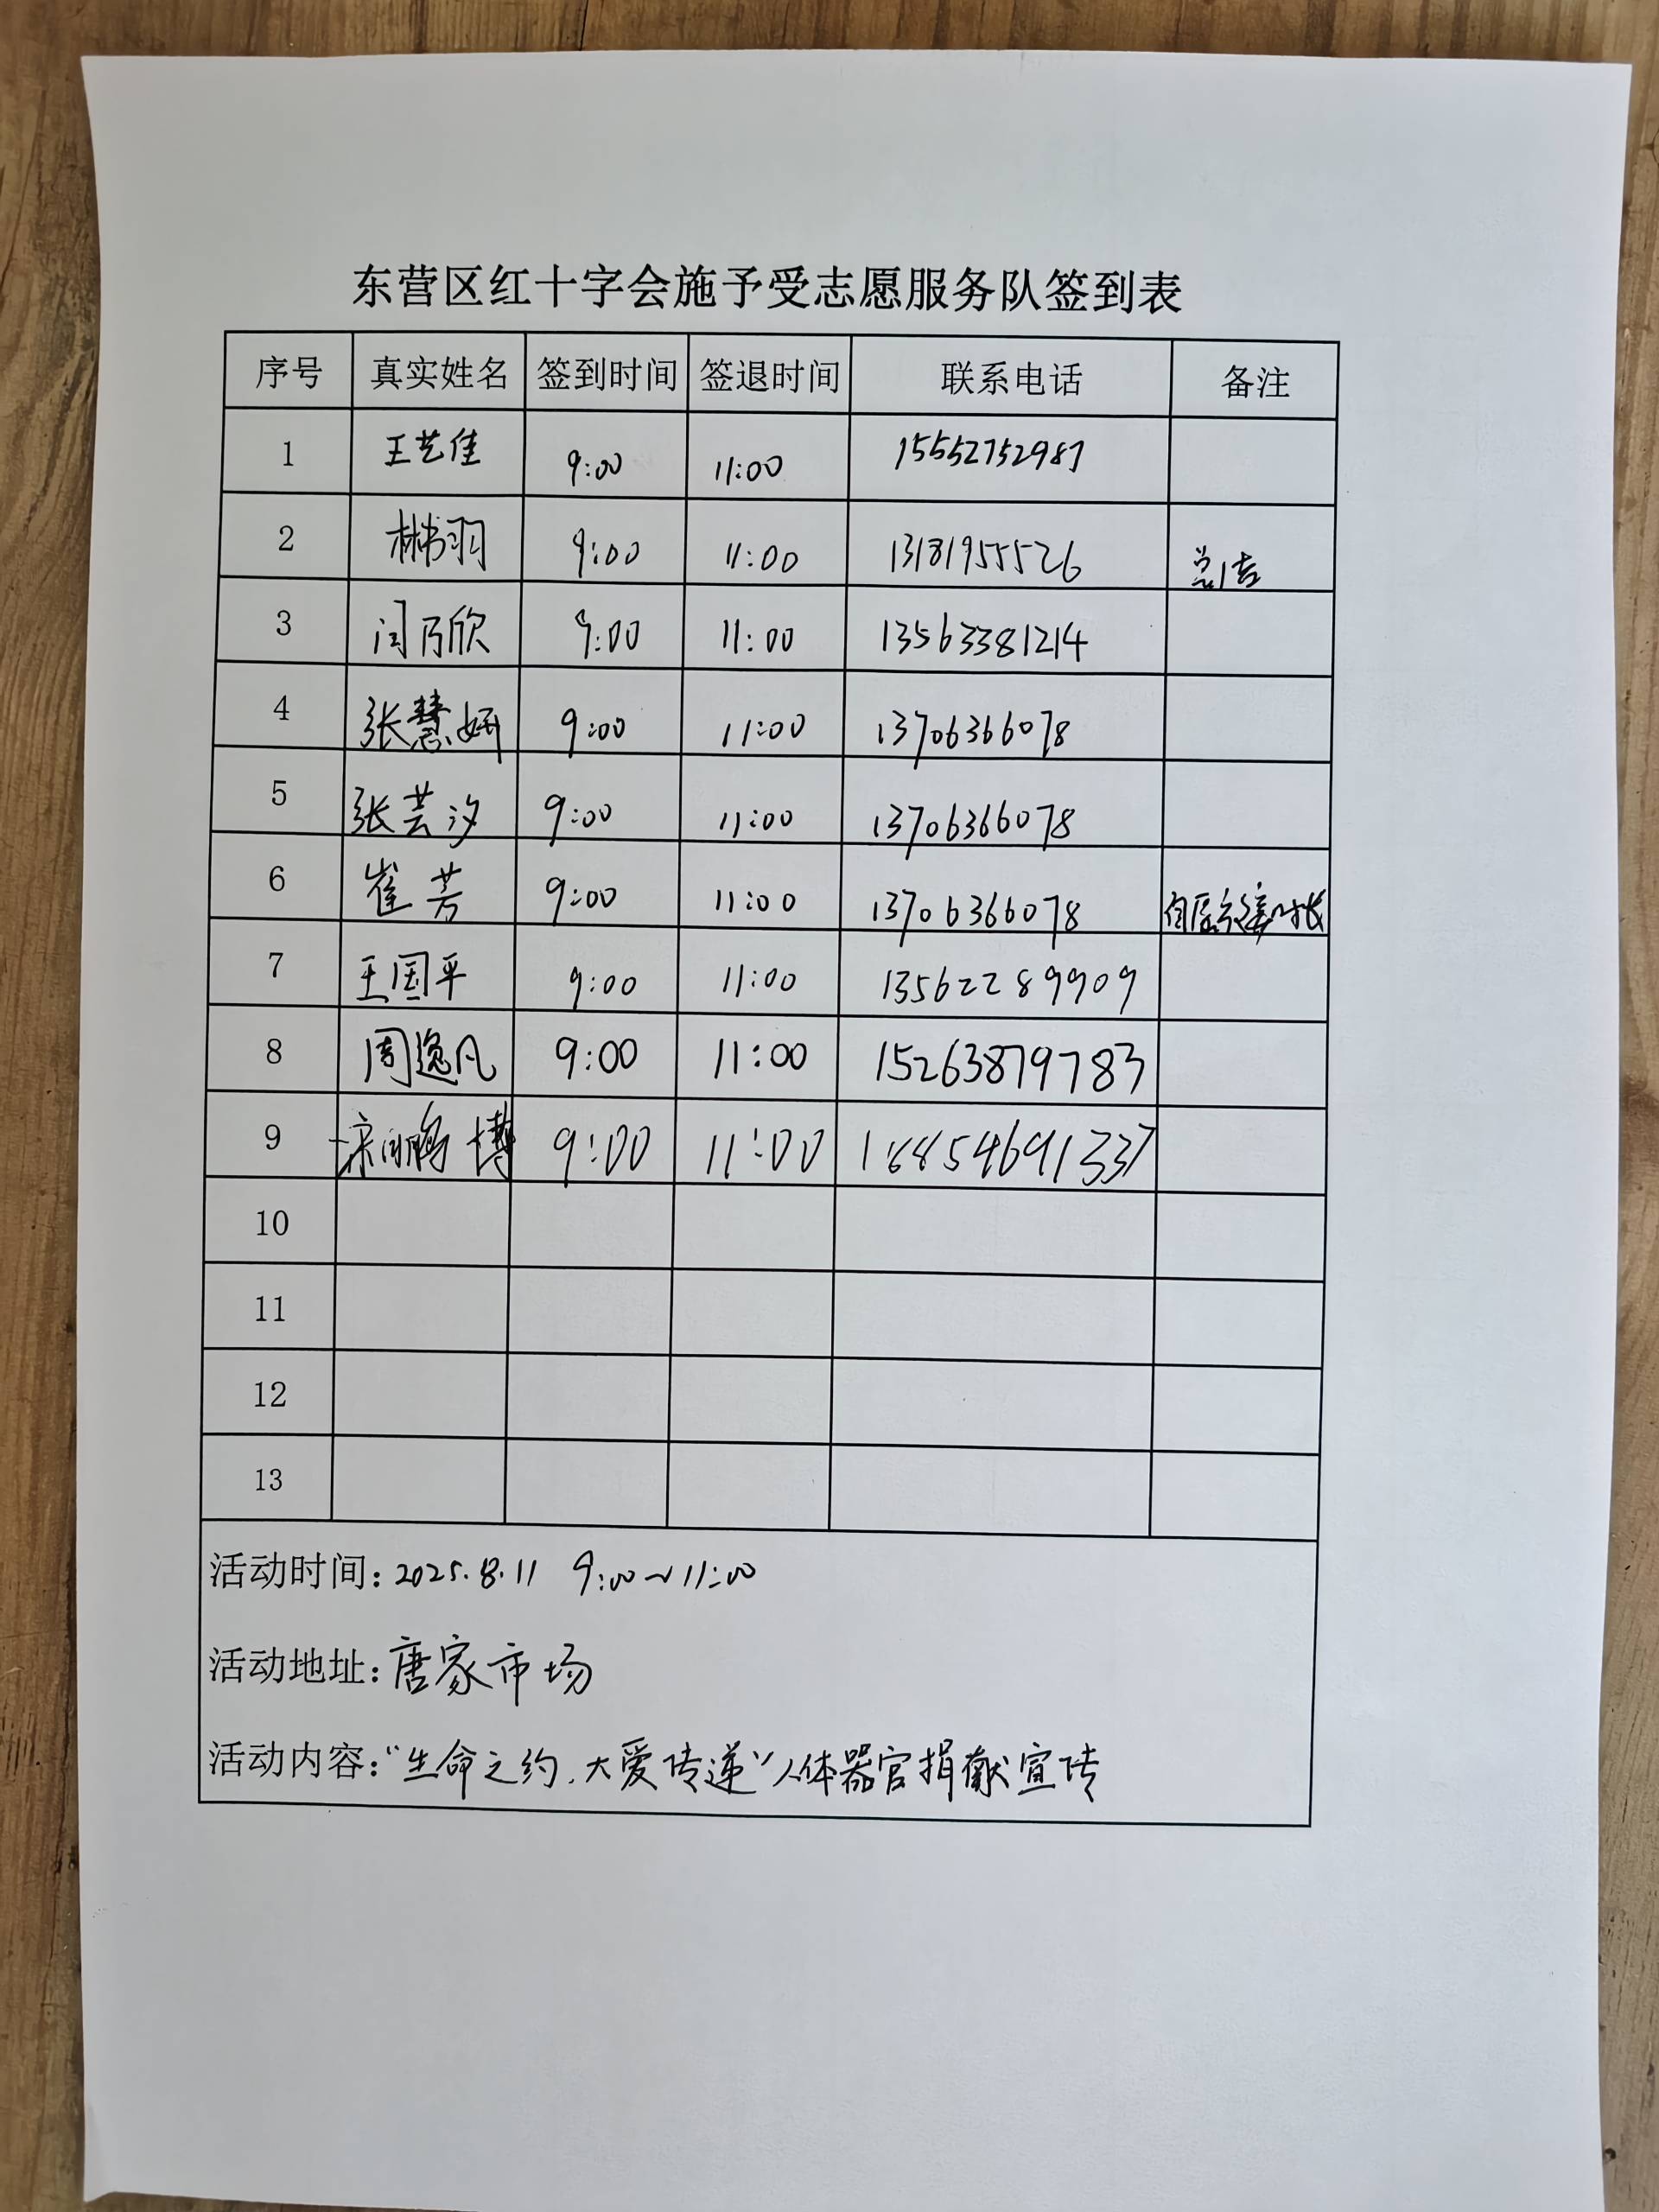 东营区红十字会施予受志愿服务队签到表
序号 真实姓名 签到时间 签退时间 联系电话 备注
1 王艺佳 9:00 11:00 15552752987
2 9:00 11:00 13181955526
3 闫乃欣 9:00 11:00 13563381214
4 张慧妍 9:00 11:00 13706366078
5 张芸汐 9:00 11:00 13706366078
6 崔芳 9:00 11:00 13706366078
7 王国平 9:00 11:00 13562289909
8 周逸凡 9:00 11:00 15263879783
9 9:00 11:00
10
11
12
13
活动时间:2025.8.11 9:00~11:00
活动地址:唐家市场
活动内容:“生命之约,大爱传递”人体器官捐献宣传